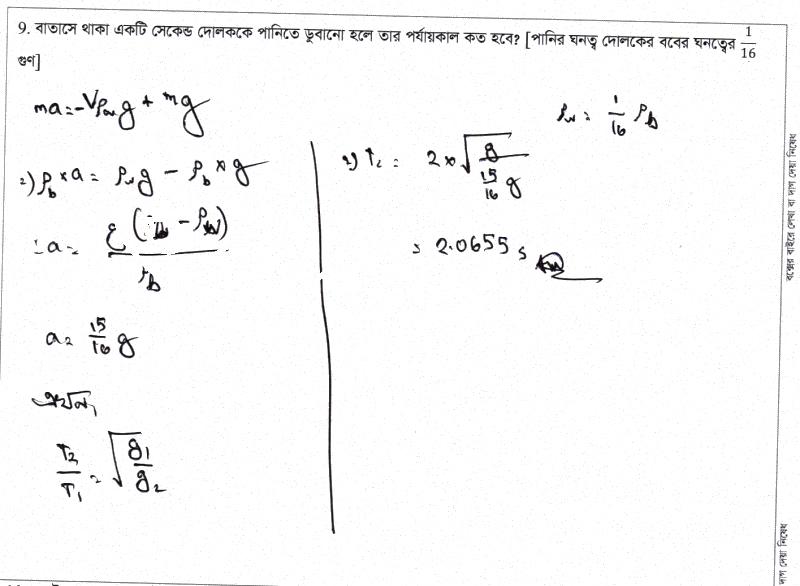 9. বাতাসে থাকা একটি সেকেন্ড দোলককে পানিতে ডুবানো হলে তার পর্যায়কাল কত হবে? [পানির ঘনত্ব দোলকের ববের ঘনত্বের 1/16
গুণ]
ma = -Vρwg + mg
⇒) ρb × a = ρwg - ρb × g
∴ a = (ρb - ρw) / ρb
a = 15/16 g
এখন,
T2/T1 = √(g1/g2)
ρw = 1/16 ρb
⇒) T2 = 2 × √(g / (15/16 g))
= 2.0655 s
বক্সের বাইরে লেখা বা দাগ দেয়া নিষেধ
দাগ দেয়া নিষেধ